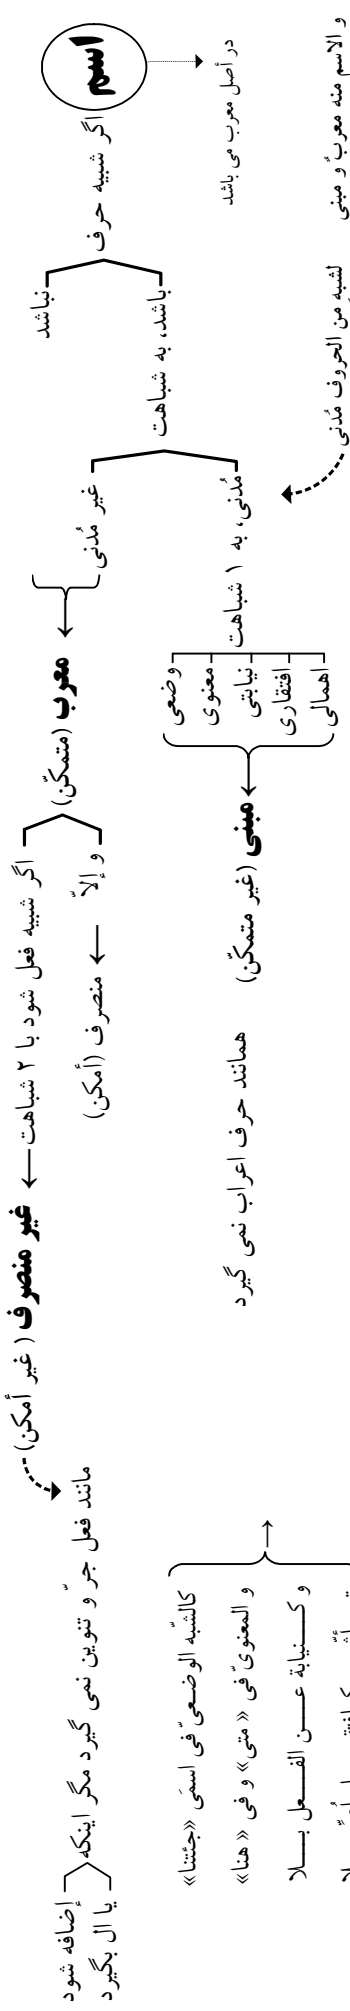 اسم
در أصل معرب می باشد
و الاسم منه معربٌ و مبنی
لشبهٍ مِن الحروف مُدنی
اگر شبیه حرف
نباشد
باشد، به شباهت
غیر مُدنی
مُدنی، به ۱ شباهت
وضعی
معنوی
نیابتی
افتقاری
اهمالی
معرب (متمکّن)
مبنی (غیر متمکّن)
همانند حرف اعراب نمی گیرد
اگر شبیه فعل شود با ۲ شباهت
و إلاّ
منصرف (أمکن)
غیر منصرف ( غیر أمکن)
مانند فعل جرّ و تنوین نمی گیرد مگر اینکه
إضافه شود
یا ال بگیرد
کالشّبه الوضـعیّ فی اسمَی «جئتنا»
و المعنویّ فی « متی» و فی « هنا»
و کـــنیابة عـــن الفـــعل بـــلا